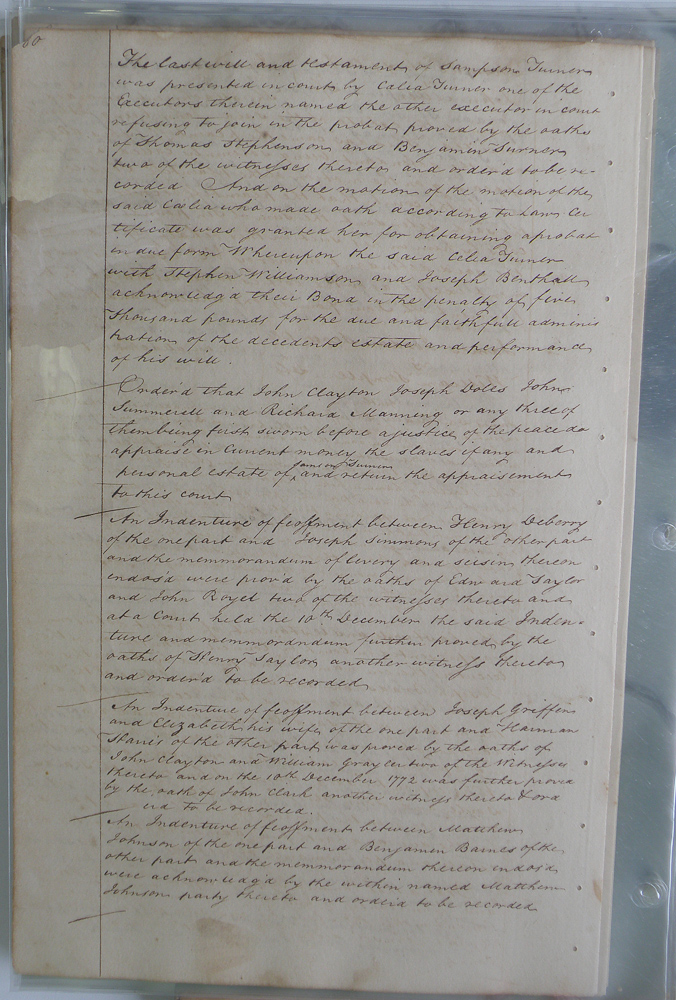 60
The last will and testament of Sampson Turner
was presented in court by Celia Turner one of the
Executors therein named the other executor in court
refusing to join in the probat proved by the oaths
of Thomas Stephenson and Benjamin Turner
two of the witnesses thereto and orderd to be re-
corded And on the motion of the motion of the
said Caelia who made oath according to Law Cer
tificate was granted her for obtaining a probat
in due form Whereupon the said Celia Turner
with Stephen Williamson and Joseph Benthall
acknowledg'd their Bond in the penalty of five
thousand pounds for the due and faithfull adminis
tration of the decedents estate and performance
of his will.
Order'd that John Clayton Joseph Doles John
Summerell and Richard Manning or any three of
them being first sworn before a justice of the peace do
appraise in Current money the slaves if any and
personal estate of Sampson Turner and return the appraisement
to this court
An Indenture of feoffment between Henry Deberry
of the one part and Joseph Simmons of the other part
and the memmorandum of livery and seisin thereon
endors'd were prov'd by the oaths of Edward Taylor
and John Royel two of the witnesses thereto and
at a Court held the 10th December the said Inden-
ture and memmorandum further proved by the
oaths of Henry Taylor another witness thereto
and order'd to be recorded
An Indenture of feoffment between Joseph Griffin
and Elizabeth his wife of the one part and Harman
of the other part was proved by the oaths of
John Clayton and William Gray two of the Witnesses
thereto and on the 10th December 1772 was further proved
by the oath of John Clark another witness thereto & ord
erd to be recorded.
An Indenture of feoffment between Matthew
Johnson of the one part and Benjamin Barnes of the
other part and the memmorandum thereon endors'd
were acknowledg'd by the within named Matthew
Johnson party thereto and order'd to be recorded